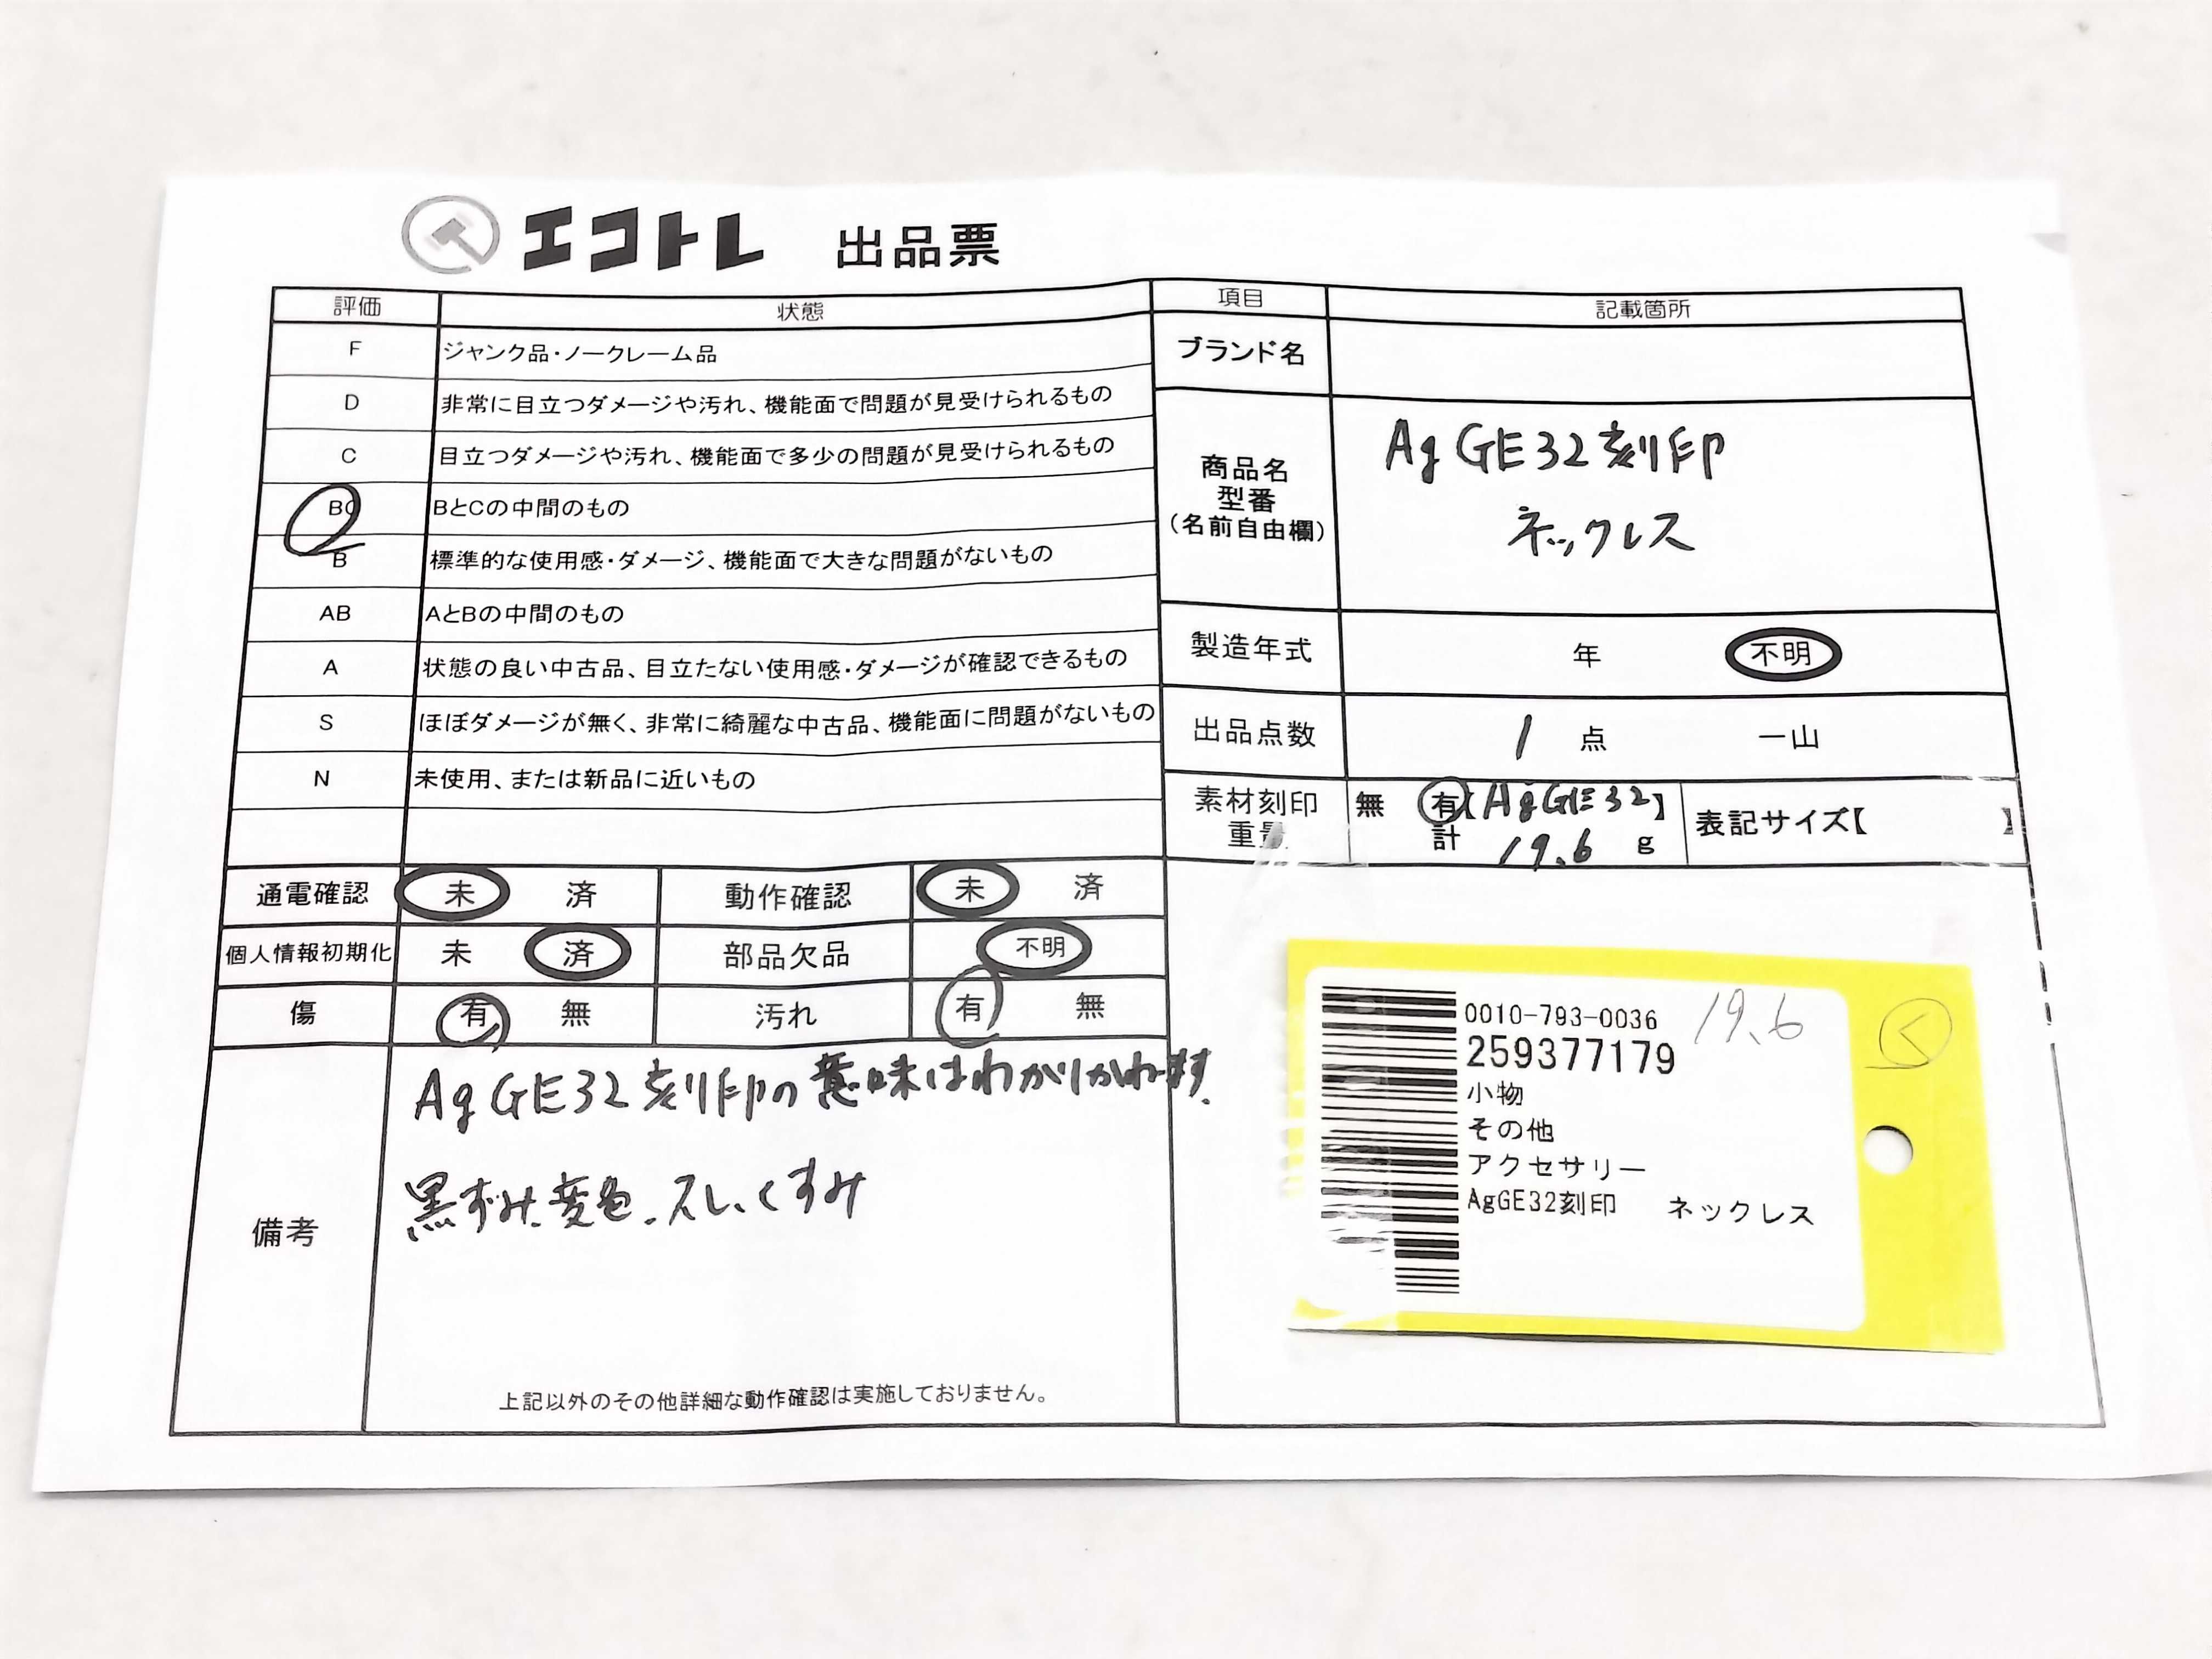 エコトレ 出品票
評価 状態
F ジャンク品・ノークレーム品
D 非常に目立つダメージや汚れ、機能面で問題が見受けられるもの
C 目立つダメージや汚れ、機能面で多少の問題が見受けられるもの
BC BとCの中間のもの
B 標準的な使用感・ダメージ、機能面で大きな問題がないもの
AB AとBの中間のもの
A 状態の良い中古品、目立たない使用感・ダメージが確認できるもの
S ほぼダメージが無く、非常に綺麗な中古品、機能面に問題がないもの
N 未使用、または新品に近いもの
項目 記載箇所
ブランド名
商品名
型番
(名前自由欄)
AgGE32刻印
ネックレス
製造年式 年 不明
出品点数 1 点 一山
素材刻印 無 有【AgGE32】
重量 計 19.6 g
表記サイズ【 】
通電確認 未 済 動作確認 未 済
個人情報初期化 未 済 部品欠品 不明
傷 有 無 汚れ 有 無
備考
AgGE32刻印の意味はわかりかねます.
黒ずみ、変色、スレ、くすみ
上記以外のその他詳細な動作確認は実施しておりません。
0010-793-0036 19.6
259377179
小物
その他
アクセサリー
AgGE32刻印 ネックレス